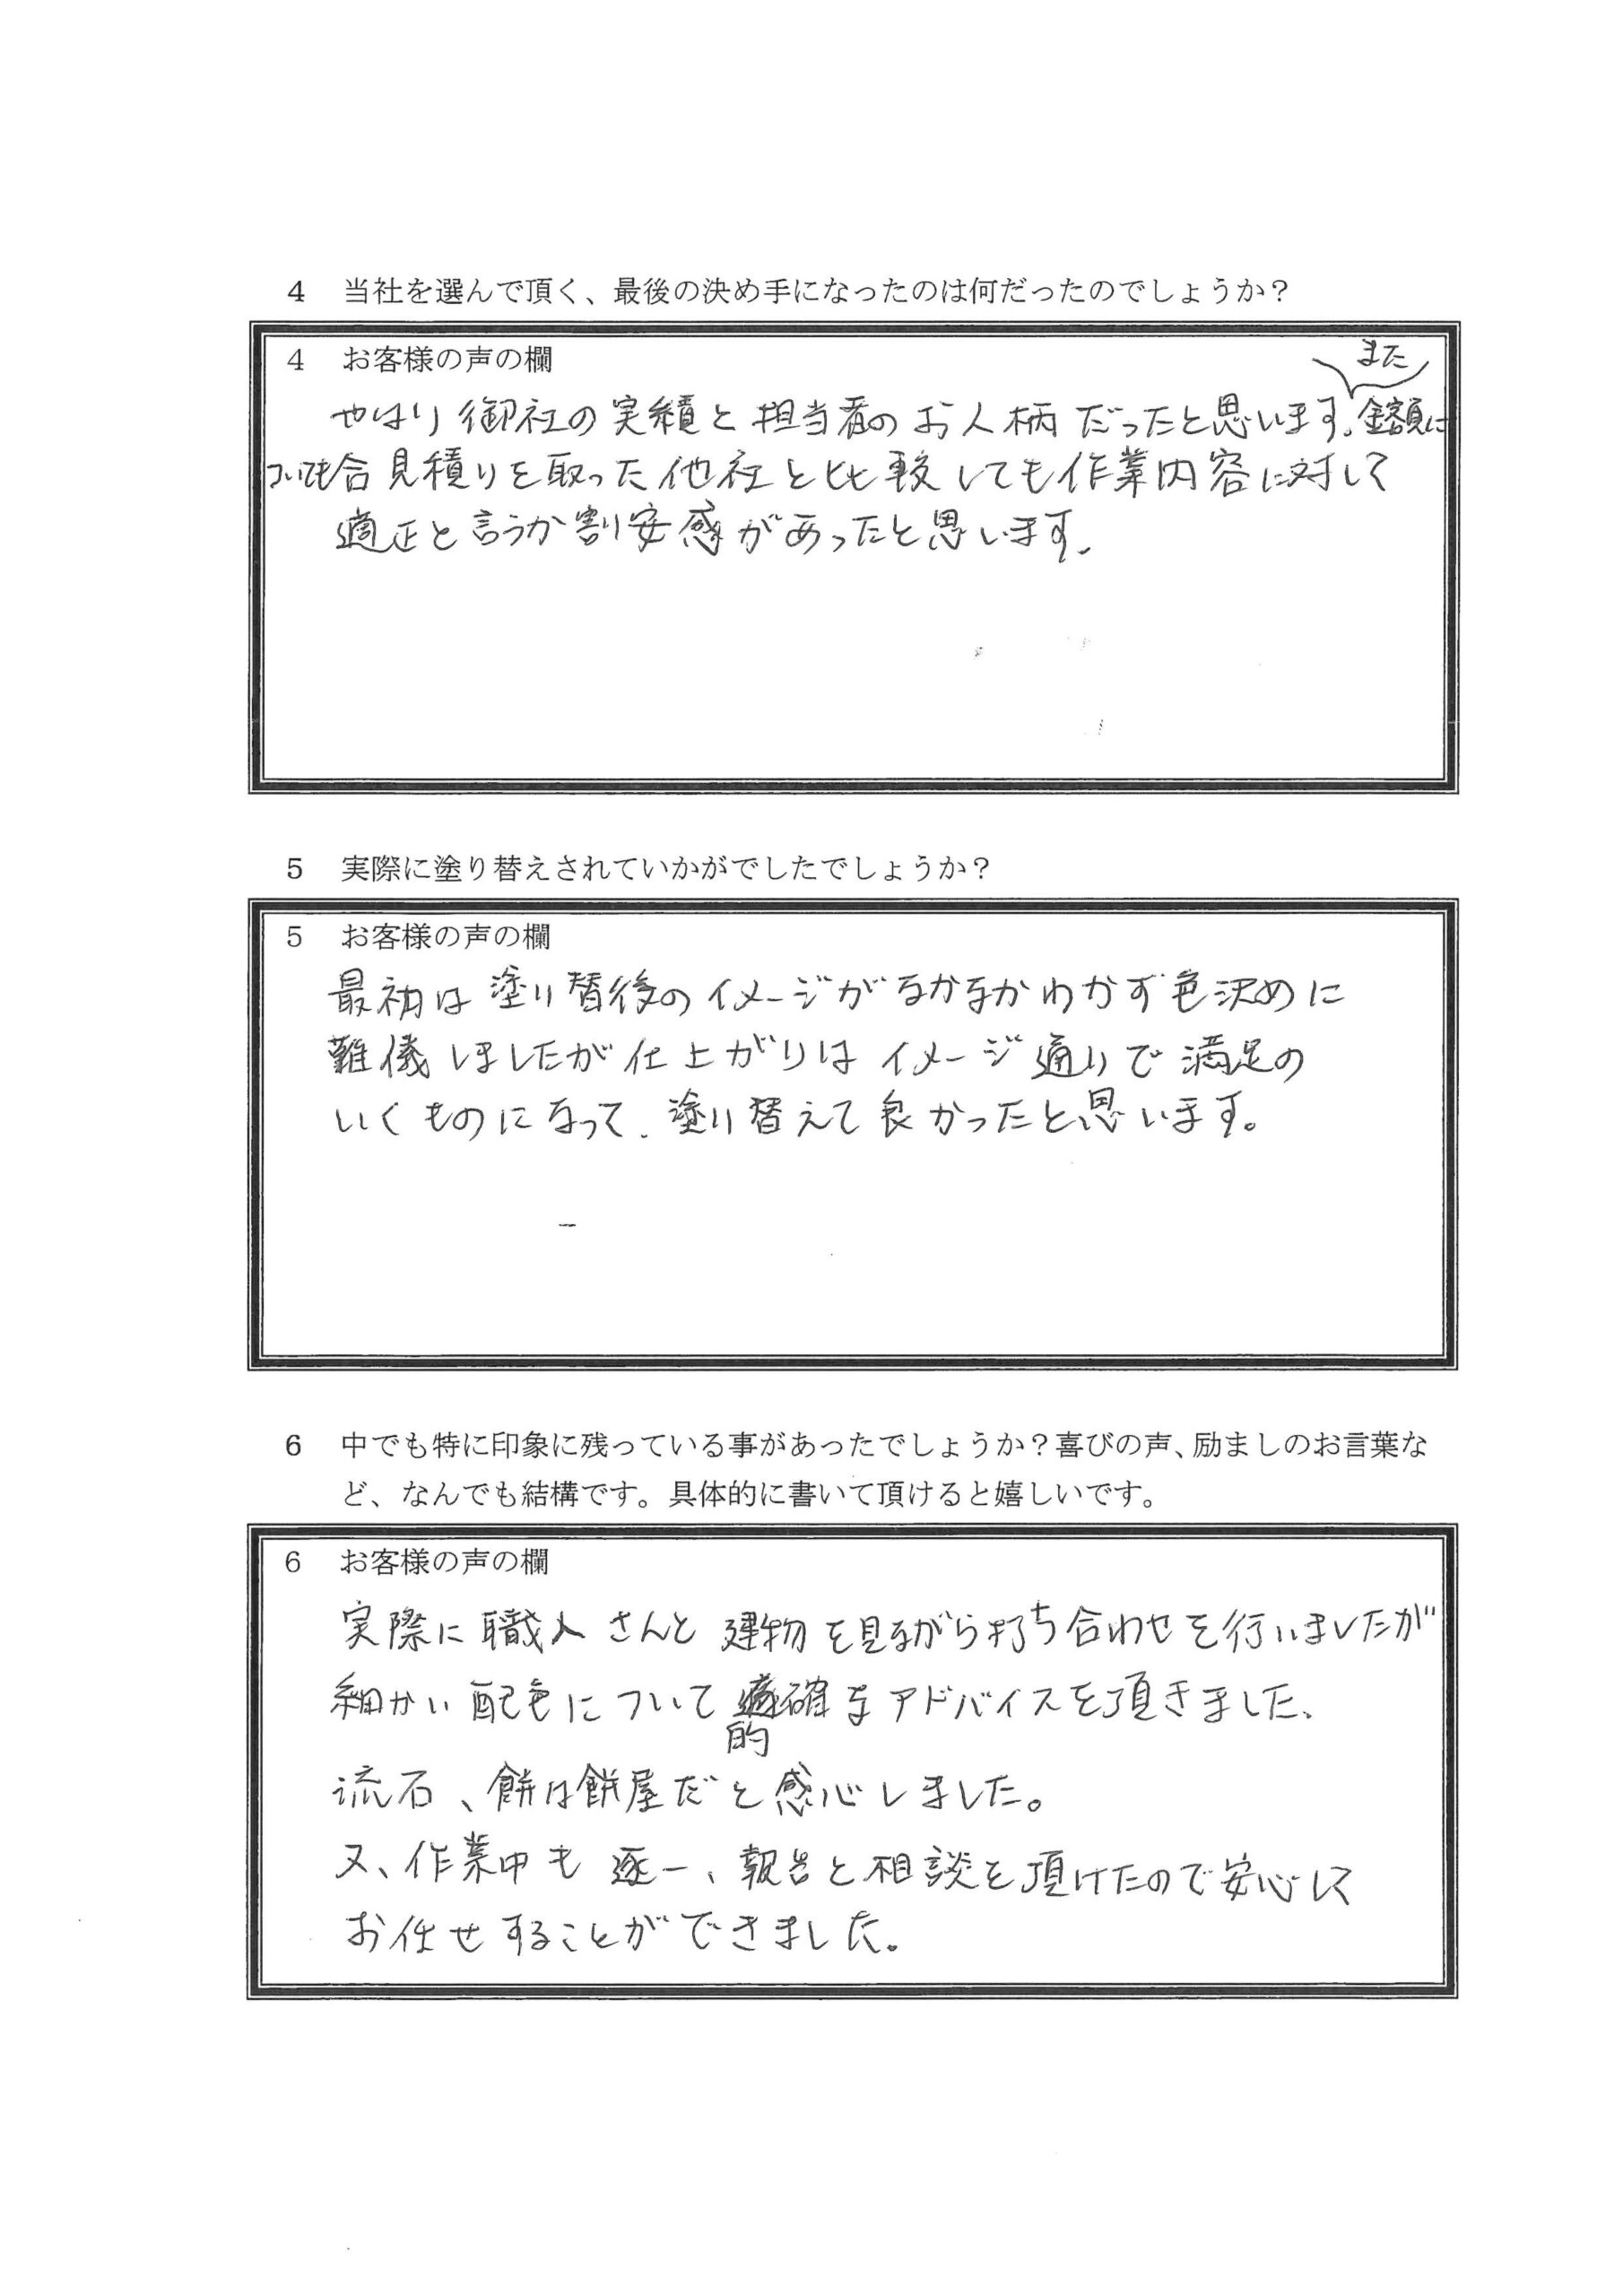 4 当社を選んで頂く、最後の決め手になったのは何だったのでしょうか？
4 お客様の声の欄
また
やはり御社の実績と担当者のお人柄だったと思います。金額に
ついても合見積りを取った他社と比較しても作業内容に対して
適正と言うか割安感があったと思います。
5 実際に塗り替えされていかがでしたでしょうか？
5 お客様の声の欄
最初は塗り替後のイメージがなかなかわかず色決めに
難儀しましたが仕上がりはイメージ通りで満足の
いくものになって、塗り替えて良かったと思います。
6 中でも特に印象に残っている事があったでしょうか？喜びの声、励ましのお言葉な
ど、なんでも結構です。具体的に書いて頂けると嬉しいです。
6 お客様の声の欄
実際に職人さんと建物を見ながら打ち合わせを行いましたが
細かい配色について確なアドバイスを頂きました、
的
流石、餅は餅屋だと感心しました。
又、作業中も逐一、報告と相談を頂けたので安心して
お任せすることができました。